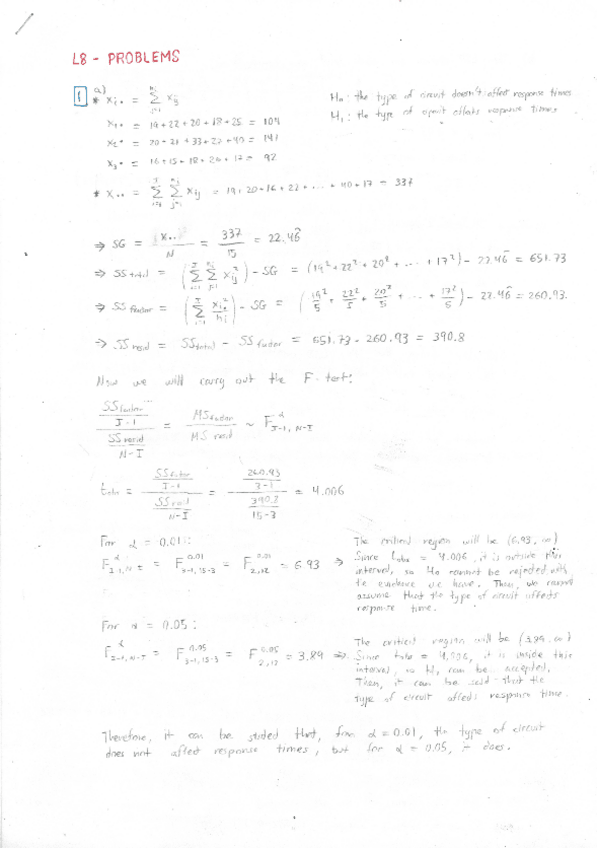 L8 - PROBLEMS
1 a)
* Xi• = Σ xij
H0: the type of circuit doesn't affect response times
H1: the type of circuit affects response times
X1• = 19 + 22 + 20 + 18 + 25 = 104
X2• = 20 + 21 + 33 + 27 + 40 = 141
X3• = 16 + 15 + 18 + 26 + 17 = 92
* X•• = Σ Σ Xij = 19 + 20 + 16 + 22 + ... + 40 + 17 = 337
⇒ SG = X••/N = 337/15 = 22.46
⇒ SS total = (Σ Σ Xij²) - SG = (19² + 22² + 20² + ... + 17²) - 22.46 = 651.73
⇒ SS factor = (Σ Xi•²/ni) - SG = (19²/5 + 22²/5 + 20²/5 + ... + 17²/5) - 22.46 = 260.93
⇒ SS resid = SS total - SS factor = 651.73 - 260.93 = 390.8
Now we will carry out the F-test:
(SS factor / I-1) / (SS resid / N-I) = MS factor / MS resid ~ F α I-1, N-I
tobs = (SS factor / I-1) / (SS resid / N-I) = (260.93 / 3-1) / (390.8 / 15-3) = 4.006
For α = 0.01:
F α I-1, N-I = F 0.01 3-1, 15-3 = F 0.01 2,12 = 6.93 ⇒
The critical region will be (6.93, ∞)
Since tobs = 4.006, it is outside this
interval, so H0 cannot be rejected with
the evidence we have. Then, we cannot
assume that the type of circuit affects
response time.
For α = 0.05:
F α I-1, N-I = F 0.05 3-1, 15-3 = F 0.05 2,12 = 3.89 ⇒
The critical region will be (3.89, ∞)
Since tobs = 4.006, it is inside this
interval, so H1 can be accepted.
Then, it can be said that the
type of circuit affects response time.
Therefore, it can be stated that, from α = 0.01, the type of circuit
does not affect response times, but for α = 0.05, it does.